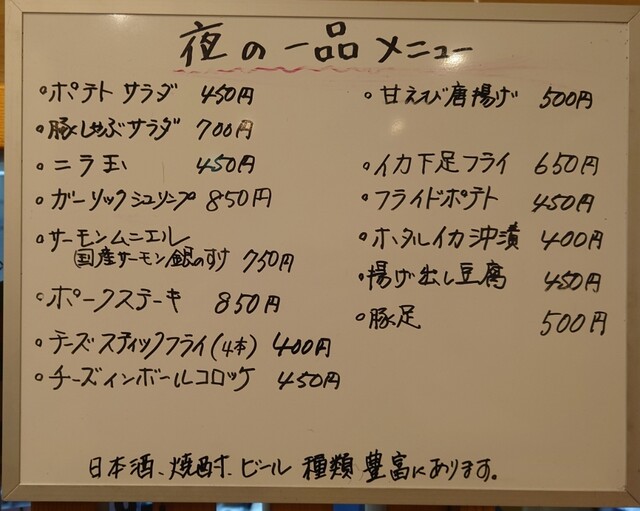 夜の一品メニュー
・ポテトサラダ 450円
・豚しゃぶサラダ 700円
・ニラ玉 450円
・ガーリックシュリンプ 850円
・サーモンムニエル
国産サーモン/銀のすけ 750円
・ポークステーキ 850円
・チーズスティックフライ(4本) 400円
・チーズインボールコロッケ 450円
・甘えび唐揚げ 500円
・イカ下足フライ 650円
・フライドポテト 450円
・ホタルイカ沖漬 400円
・揚げ出し豆腐 450円
・豚足 500円
日本酒、焼酎、ビール 種類豊富にあります。